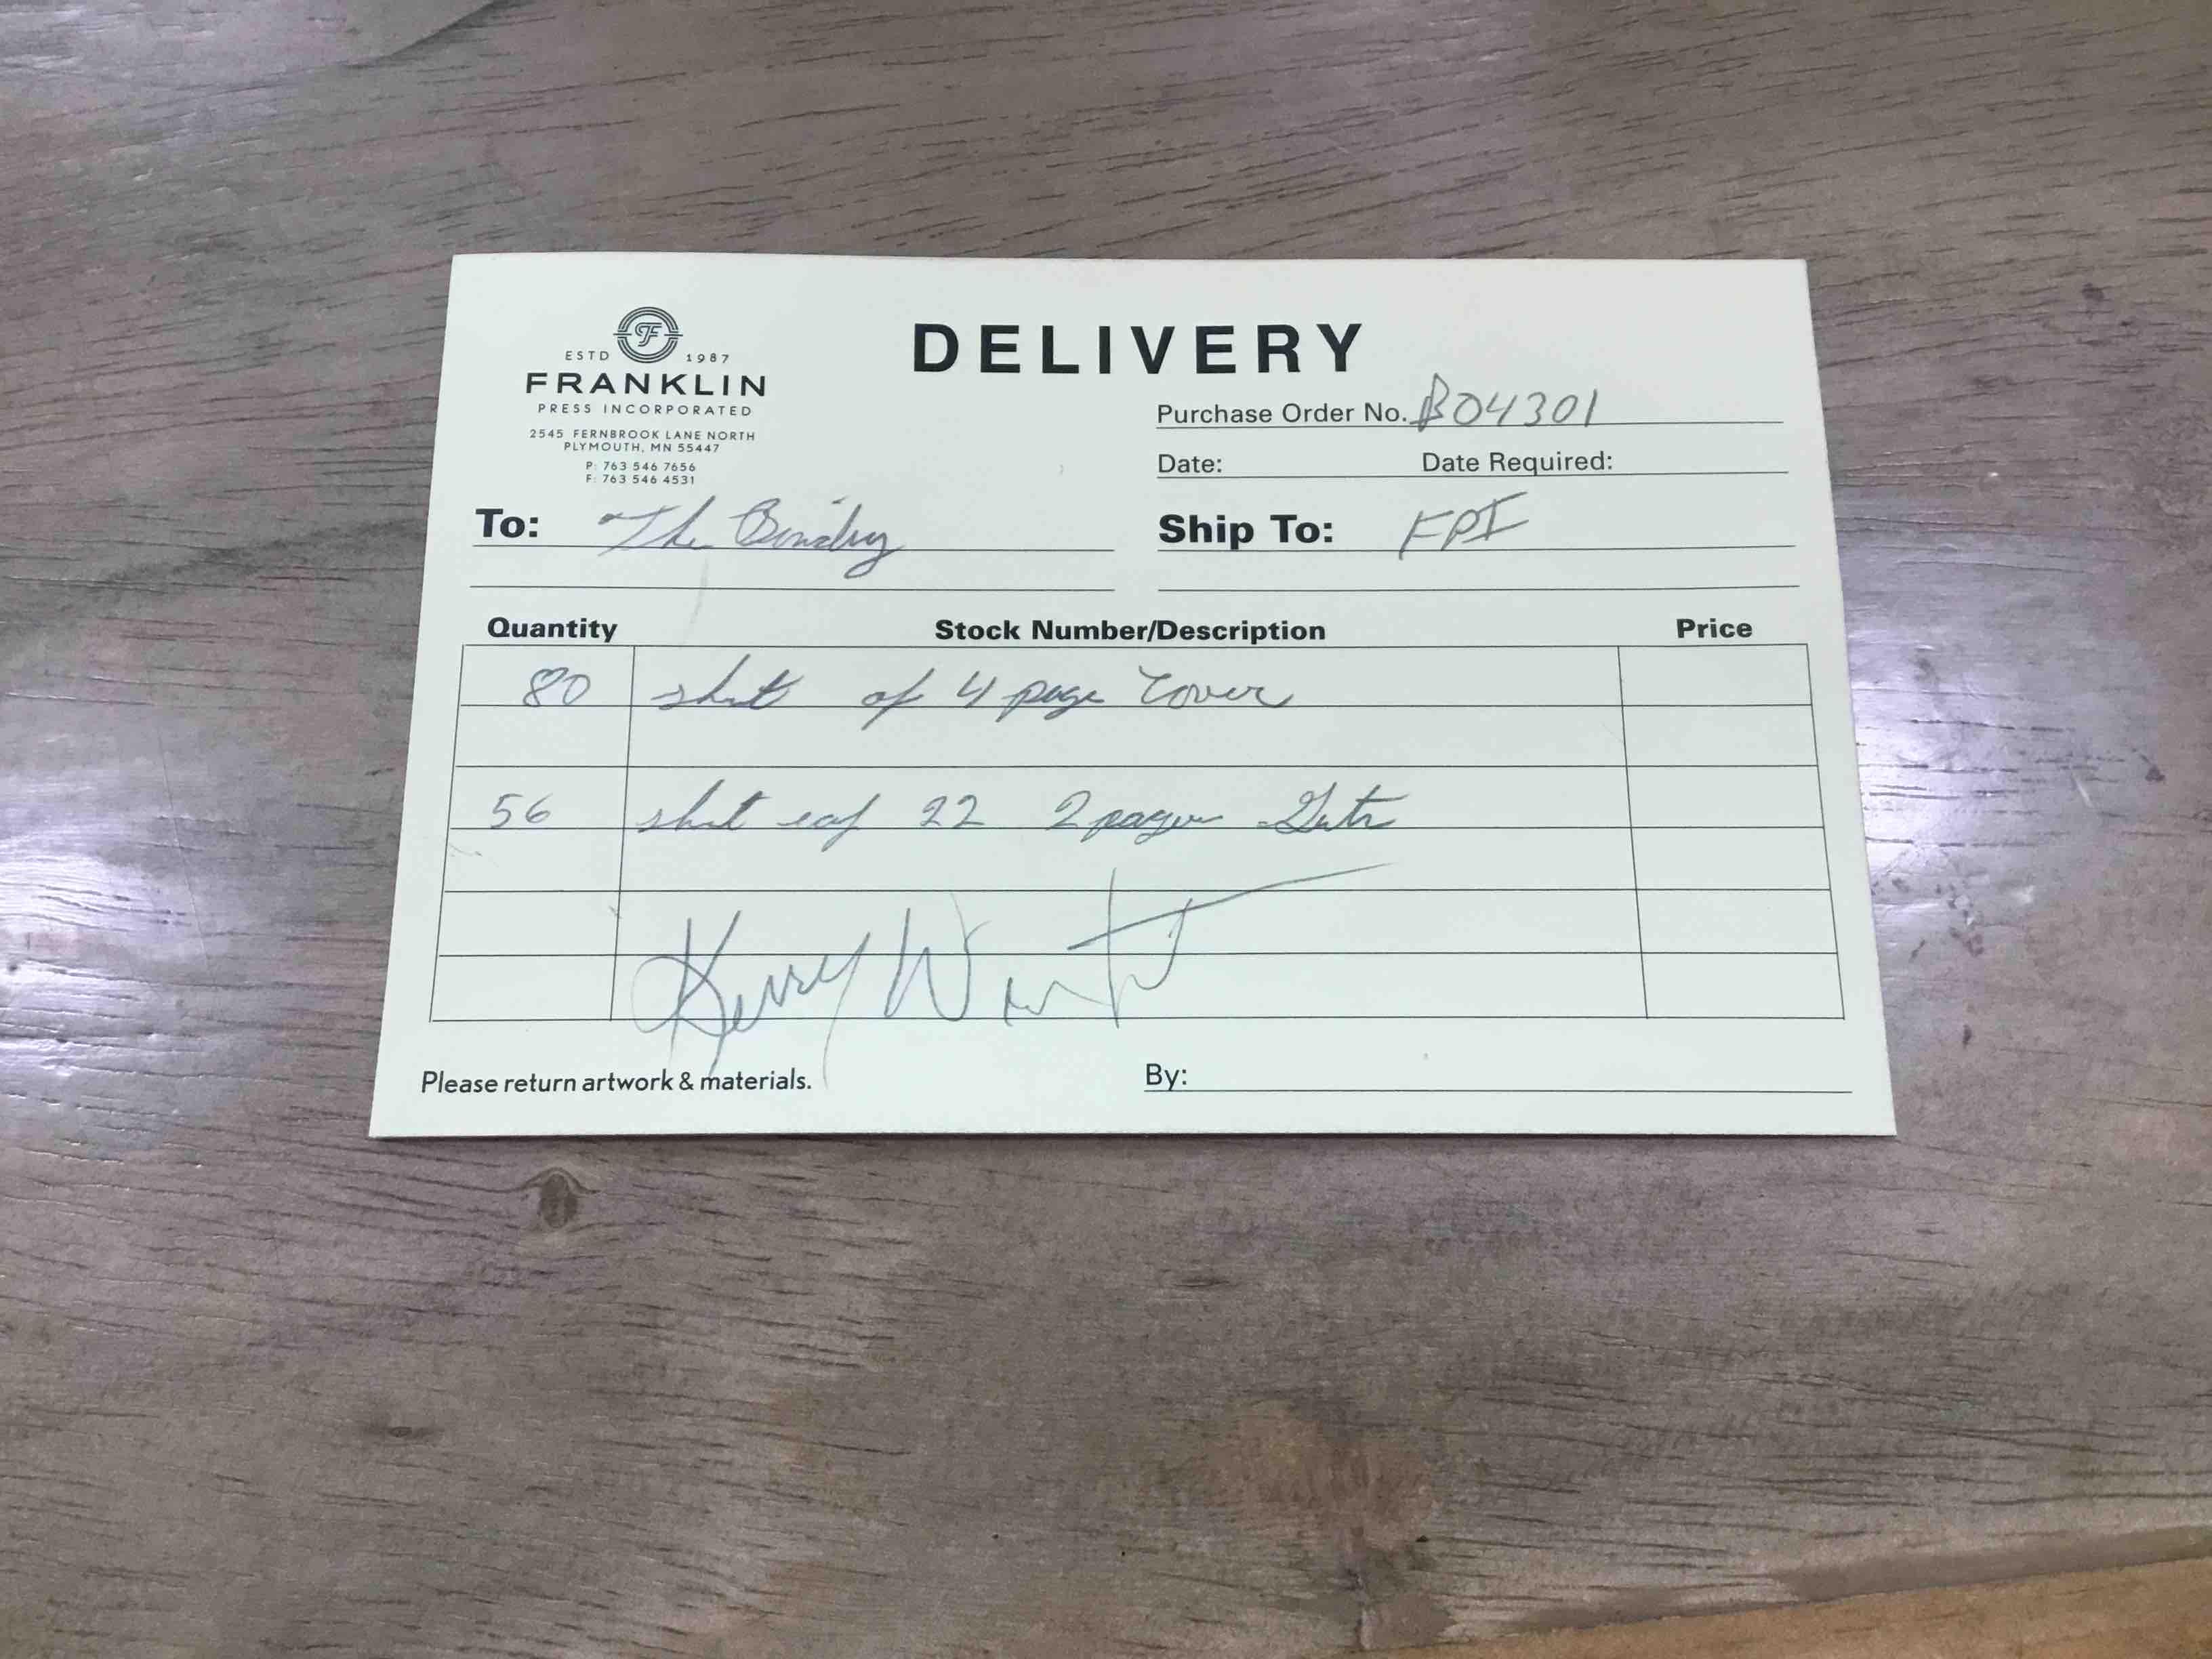 ESTD 1987
FRANKLIN
PRESS INCORPORATED
2545 FERNBROOK LANE NORTH
PLYMOUTH, MN 55447
P: 763 546 7656
F: 763 546 4531
DELIVERY
Purchase Order No. B04301
Date: Date Required:
To: The Bindry
Ship To: FPI
Quantity Stock Number/Description Price
80 sheet of 4 page Cover
56 sheet eaf 22 2 pager
Kerry
Please return artwork & materials.
By: